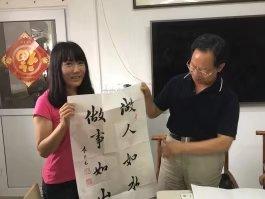 做人如水
做事如山